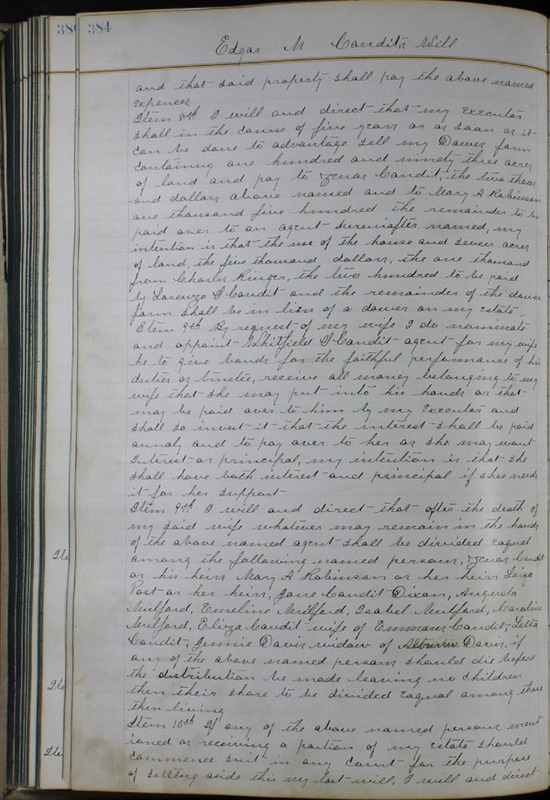 38
384
Edgar M Condit's Will
and that said property shall pay the above named
expences
Item 8th I will and direct that my executor
shall in the course of five years or as soon as it
can be done to advantage sell my Dower farm
containing one hundred and ninety three acres
of land and pay to Zenas Condit, the two thous
and dollars above named and to Mary A Robinson
one thousand five hundred the remainder to be
paid over to an agent hereinafter named, my
intention is that the use of the house and seven acres
of land, the five thousand dollars, the one thousand
from Charles Ringer, the two hundred to be paid
by Lorenzo D Condit and the remainder of the dower
farm shall be in lieu of a dower on my estate
Item 9th By request of my wife I do nominate
and appoint Whitfield S Condit agent for my wife
he to give bonds for the faithful performance of his
duties as trustee, receive all money belonging to my
wife that she may put into his hands or that
may be paid over to him by my executor and
shall so invest it that the interest shall be paid
annaly and to pay over to her as she may want
interest or principal, my intention is that she
shall have both interest and principal if she needs
it for her support
Item 9th I will and direct that after the death of
my said wife whatever may remain in the hands
of the above named agent shall be divided equal
among the following named persons, Zenas Condit
or his heirs Mary A Robinson or her heirs
Post or her heirs, Jane Condit Dixon, Augusta
Mulford, Emeline Mulford, Isabel Mulford, Caroline
Mulford, Eliza Condit wife of Emmons Condit, Letta
Condit, Jennie Davis widow of Davis, if
any of the above named persons should die before
the distribution be made leaving no children
then their share to be divided equal among those
then living
Item 10th If any of the above named persons ment
ioned as receiving a portion of my estate should
commence suit in any Court for the purpose
of setting aside this my last will, I will and direct
Ite
Ite
Ite